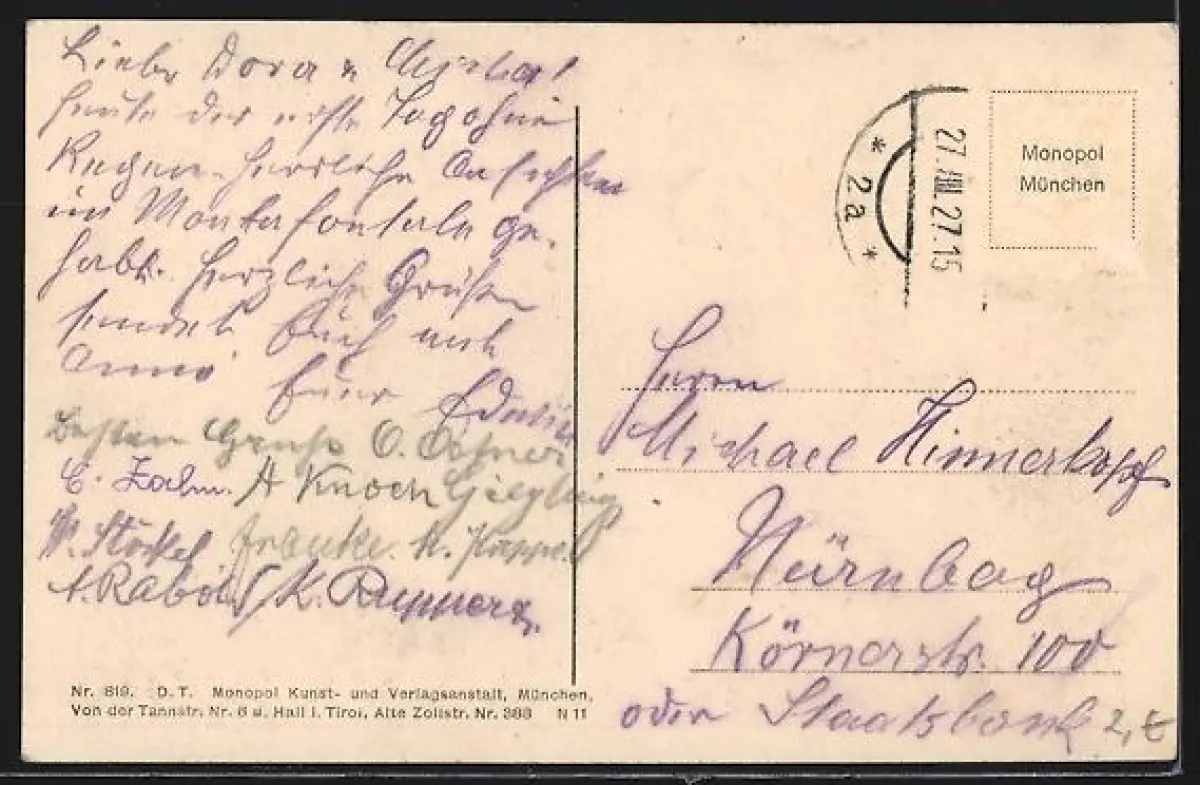 Liebe Dora u.
heute der erste Tag ohne
Regen. Herrliche Ansichten
im Montafontale ge-
habt. Herzliche Grüße
sendet Euch nebst
Anni Euer Edwin
Besten Gruß O.
E. Zahn. A Knoch
W. Stöckel Franke. K.
K.
Nr. 819. D. T. Monopol Kunst- und Verlagsanstalt, München,
Von der Tannstr. Nr. 6 u. Hall i. Tirol, Alte Zollstr. Nr. 388 N 11
* 2a *
27.VIII.27.15
Monopol
München
Herrn
Michael Himmerkopf
Nürnberg
Körnerstr. 100
oder Staatsbank